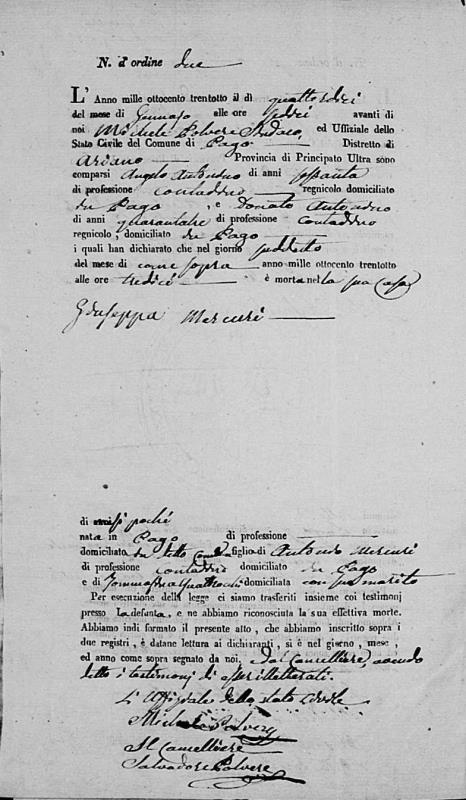 N. d'ordine due
L' Anno mille ottocento trentotto il di quattordici
del mese di Gennajo alle ore sedici avanti di
noi Michele Polvere Sindaco, ed Uffiziale dello
Stato Civile del Comune di Pago Distretto di
Ariano Provincia di Principato Ultra sono
comparsi Angelo di anni sessanta
di professione contadino regnicolo domiciliato
in Pago, e Donato
di anni quarantatre di professione contadino
regnicolo, domiciliato in Pago
i quali han dichiarato che nel giorno suddetto
del mese di come sopra anno mille ottocento trentotto
alle ore tredici è morta nella sua casa
Giuseppa Mercuri
di
nata in Pago di professione
domiciliato in detto figlia di Antonio Mercuri
di professione contadino domiciliato in Pago
e di domiciliata con suo marito
Per esecuzione della legge ci siamo trasferiti insieme coi testimonj
presso la defunta, e ne abbiamo riconosciuta la sua effettiva morte.
Abbiamo indi formato il presente atto, che abbiamo inscritto sopra i
due registri, è datane lettura ai dichiaranti, si è nel giorno, mese,
ed anno come sopra segnato da noi, e dal Cancelliere, avendo
detto i testimonj di esser illetterati.
L'Uffiziale dello stato Civile
Michele Polvere
Il Cancelliere
Salvadore Polvere